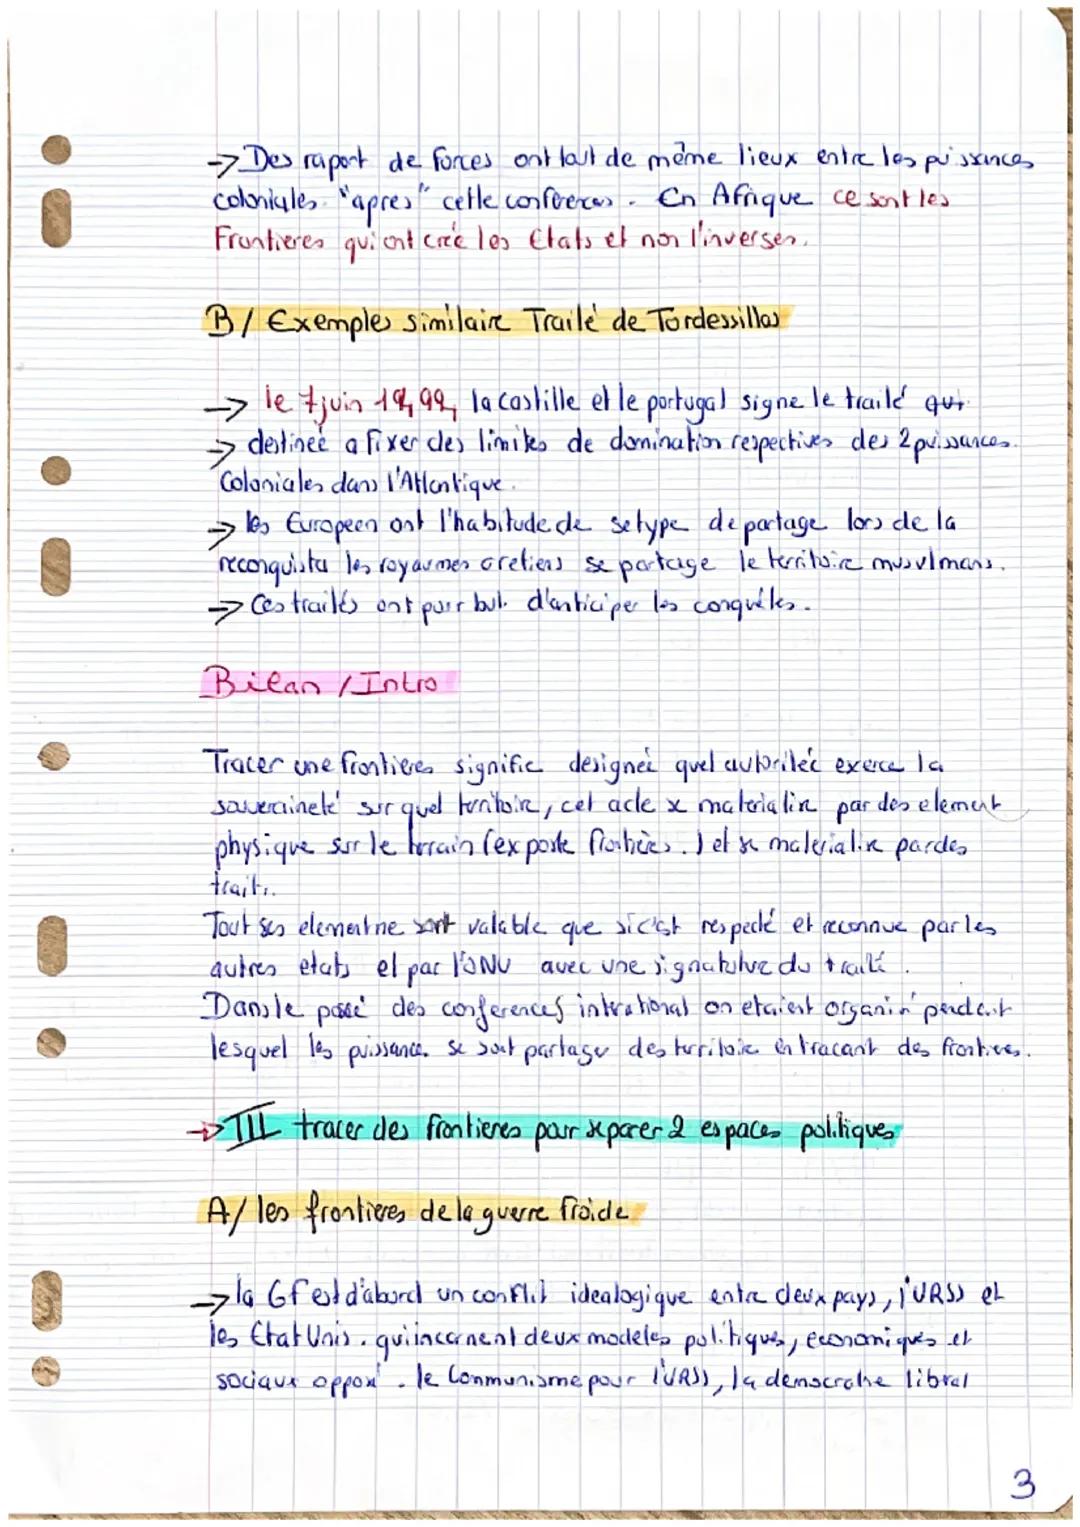 -> Des raport de forces ont tout de même lieux entre les puissances
coloniales "apres" cette conferences. En Afrique ce sont les
Frontieres qui ont crée les Etats et non l'inverses.
B/ Exemples similaire Traité de Tordessillas
-> le 7 juin 1494, la castille et le portugal signe le traité qui
-> destineé a fixer des limites de domination respectives des 2 puissances
Coloniales dans l'Atlantique.
-> les Europeen ont l'habitude de se type de partage lors de la
reconquista les royaumes cretiens se partage le territoire musulmans.
-> Ces traités ont pour but d'anticiper les conquêtes.
Bilan / Intro
Tracer une frontieres signifie designeé quel autoriteé exerce la
souveraineté sur quel territoire, cet acte se materialise par des element
physique sur le terrain (ex poste frontières.) et se materialise par des
traits.
Tout ses element ne sont valable que si c'est respecté et reconnue par les
autres etats et par l'ONU avec une signature du traité.
Dans le passé des conferences international on etaient organisé pendant
lesquel les puissances se sont partager des territoire en tracant des frontieres.
-> III tracer des frontieres pour separer 2 espaces politiques
A/ les frontieres de la guerre froide
-> la Gf est d'abord un conflit idealogique entre deux pays, l'URSS et
les Etat Unis. qui incarnent deux modeles politiques, economiques et
sociaux opposé. le Communisme pour l'URSS, la democratie libral
3